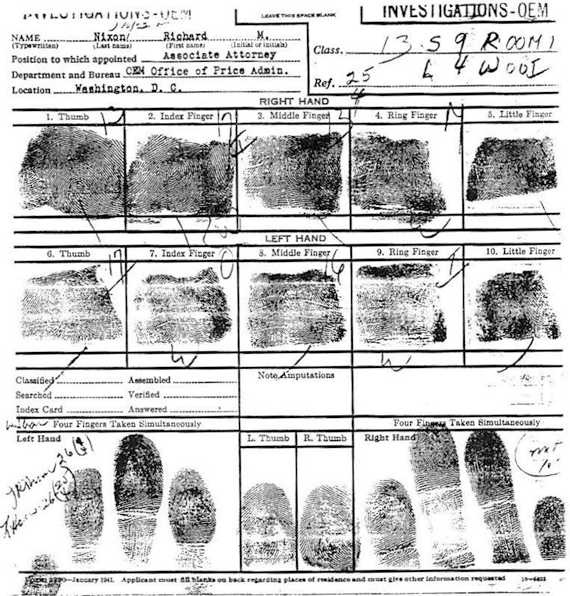 INVESTIGATIONS-OEM
LEAVE THIS SPACE BLANK
INVESTIGATIONS-OEM
NAME Nixon/ Richard M.
(Typewritten) (Last name) (First name) (Initial or initials)
Position to which appointed Associate Attorney
Department and Bureau OEM Office of Price Admin.
Location Washington, D. C.
Class. 13 5 9 R OOM 1
Ref. 25 L 4 W OOI
4
RIGHT HAND
1. Thumb 2. Index Finger 3. Middle Finger 4. Ring Finger 5. Little Finger
LEFT HAND
6. Thumb 7. Index Finger 8. Middle Finger 9. Ring Finger 10. Little Finger
Classified Assembled Note Amputations
Searched Verified
Index Card Answered
Four Fingers Taken Simultaneously Four Fingers Taken Simultaneously
Left Hand L. Thumb R. Thumb Right Hand
January 1941. Applicant must fill blanks on back regarding places of residence and must give other information requested